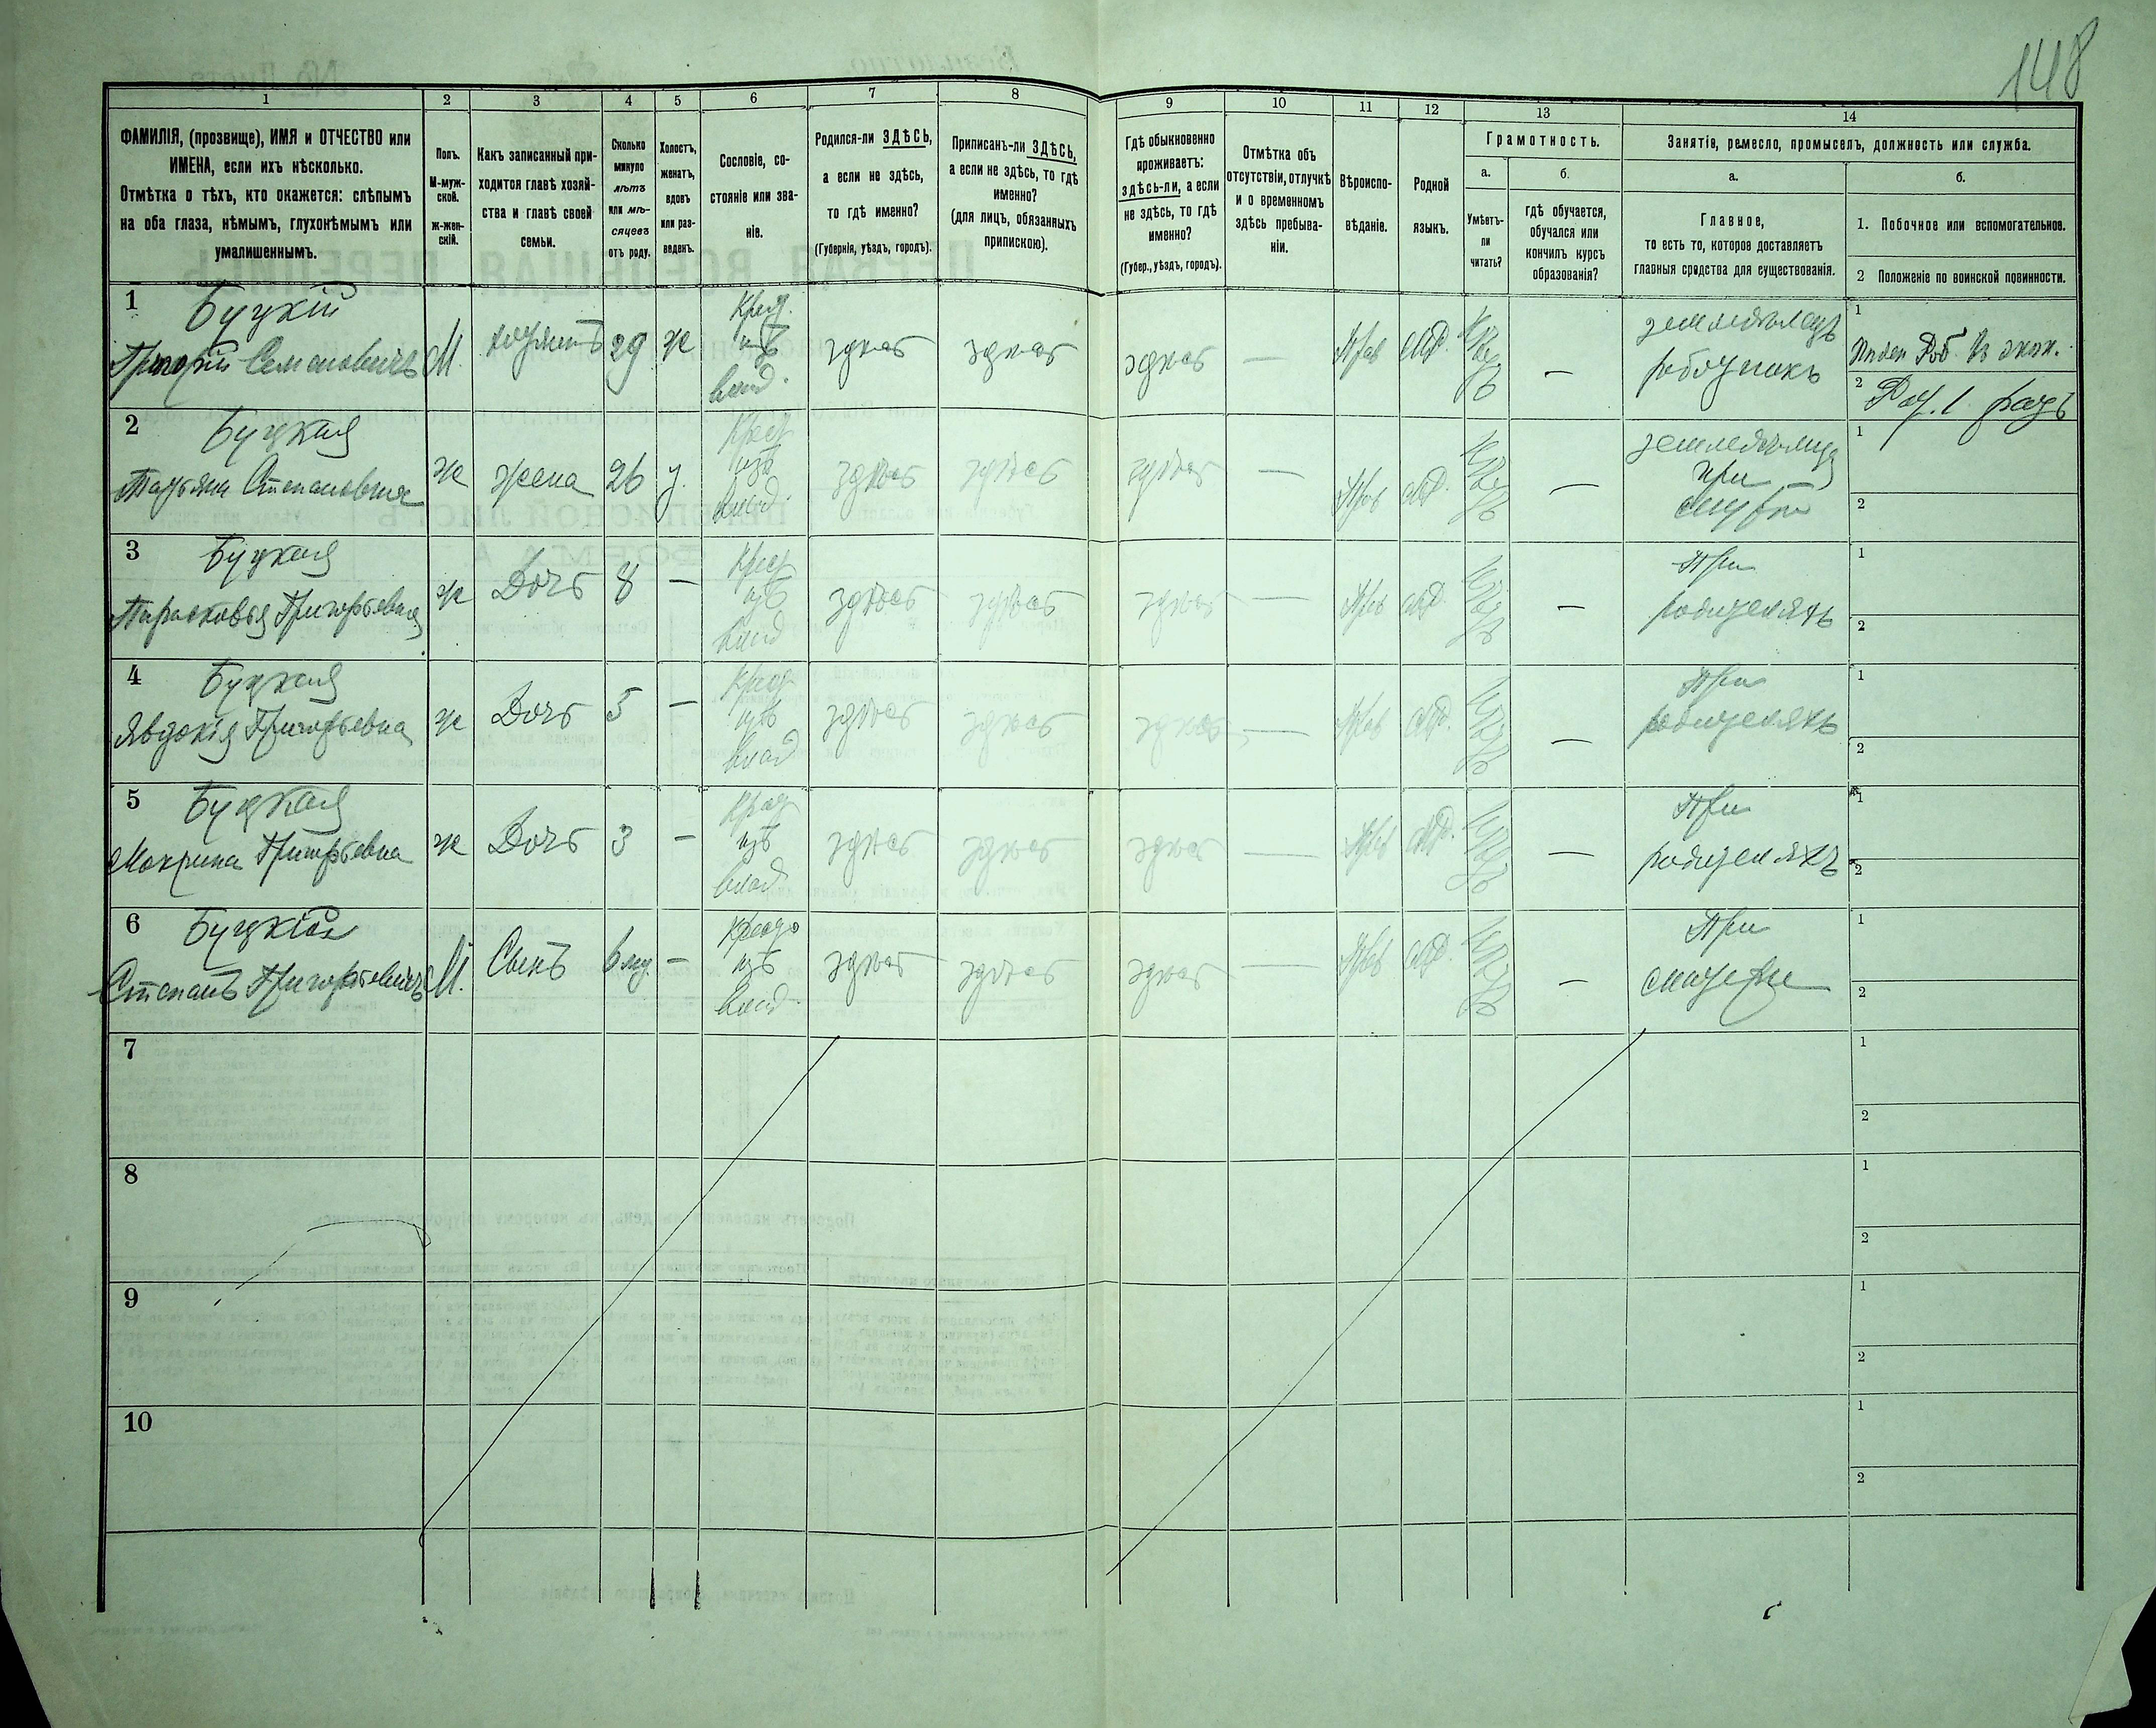 148
1 2 3 4 5 6 7 8 9 10 11 12 13 14
ФАМИЛІЯ, (прозвище), ИМЯ и ОТЧЕСТВО или
ИМЕНА, если ихъ нѣсколько.
Отмѣтка о тѣхъ, кто окажется: слѣпымъ
на оба глаза, нѣмымъ, глухонѣмымъ или
умалишеннымъ.
Полъ.
М-муж-
ской.
ж-жен-
скій.
Какъ записанный при-
ходится главѣ хозяй-
ства и главѣ своей
семьи.
Сколько
минуло
лѣтъ
или мѣ-
сяцевъ
отъ роду.
Холостъ,
женатъ,
вдовъ
или раз-
веденъ.
Сословіе, со-
стояніе или зва-
ніе.
Родился-ли ЗДѢСЬ,
а если не здѣсь,
то гдѣ именно?
(Губернія, уѣздъ, городъ).
Приписанъ-ли ЗДѢСЬ,
а если не здѣсь, то гдѣ
именно?
(для лицъ, обязанныхъ
припискою).
Гдѣ обыкновенно
проживаетъ:
здѣсь-ли, а если
не здѣсь, то гдѣ
именно?
(Губер., уѣздъ, городъ).
Отмѣтка объ
отсутствіи, отлучкѣ
и о временномъ
здѣсь пребыва-
ніи.
Вѣроиспо-
вѣданіе.
Родной
языкъ.
Грамотность.
а.
Умѣетъ-
ли
читать?
б.
гдѣ обучается,
обучался или
кончилъ курсъ
образованія?
Занятіе, ремесло, промыселъ, должность или служба.
а.
Главное,
то есть то, которое доставляетъ
главныя средства для существованія.
б.
1. Побочное или вспомогательное.
2 Положеніе по воинской повинности.
1 Буцкій
Григорій Семеновичъ М. хозяинъ 29 ж
Крест.
изъ
влад.
здѣсь здѣсь здѣсь — Прав
—
земледѣлецъ
работникъ
1
2
2 Буцкая
Татьяна Степановна ж жена 26 з.
Крест
изъ
влад.
здѣсь здѣсь здѣсь — Прав
—
при
1
2
3 Буцкая
Парасковья Григорьевна ж Дочь 8 —
Крест
изъ
влад
здѣсь здѣсь здѣсь — Прав
—
При
родителяхъ
1
2
4 Буцкая
Явдокія Григорьевна ж Дочь 5 —
Крест
изъ
влад
здѣсь здѣсь здѣсь — Прав
—
При
родителяхъ
1
2
5 Буцкая
Мокрина Григорьевна ж Дочь 3 —
Крест
изъ
влад
здѣсь здѣсь здѣсь — Прав
—
При
родителяхъ
1
2
6 Буцкій
Степанъ Григорьевичъ М. Сынъ —
изъ
влад.
здѣсь здѣсь здѣсь — Прав
—
При
1
2
7
1
2
8
1
2
9
1
2
10
1
2